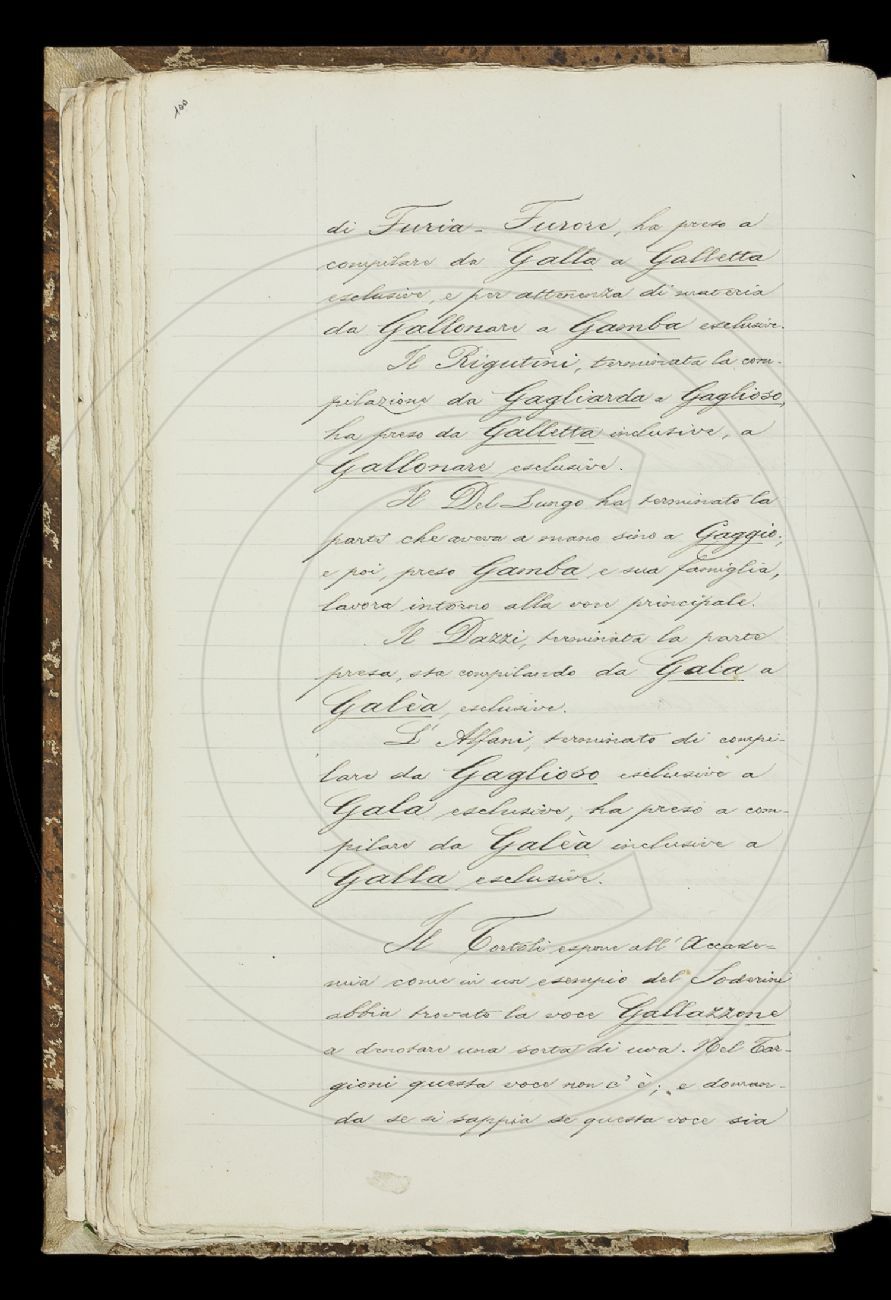 100
di Furia - Furore, ha preso a
compilare da Galla a Galletta
esclusive, e per attenenza di materia
da Gallonare a Gamba esclusive.
Il Rigutini, terminata la com-
pilazione da Gagliarda a Gaglioso,
ha preso da Galletta inclusive, a
Gallonare esclusive.
Il Del Lungo ha terminato la
parte che aveva a mano sino a Gaggio;
e poi, preso Gamba e sua famiglia,
lavora intorno alla voce principale.
Il Dazzi, terminata la parte
presa, sta compilando da Gala a
Galèa, esclusive.
L'Alfani, terminato di compi-
lare da Gaglioso esclusive a
Gala esclusive, ha preso a com-
pilare da Galèa inclusive a
Galla esclusive.
Il Tortoli espone all'Accade-
mia come in un esempio del Soderini
abbia trovato la voce Gallazzone
a denotare una sorta di uva. Nel Tar-
gioni questa voce non c'è; e doman-
da se si sappia se questa voce sia